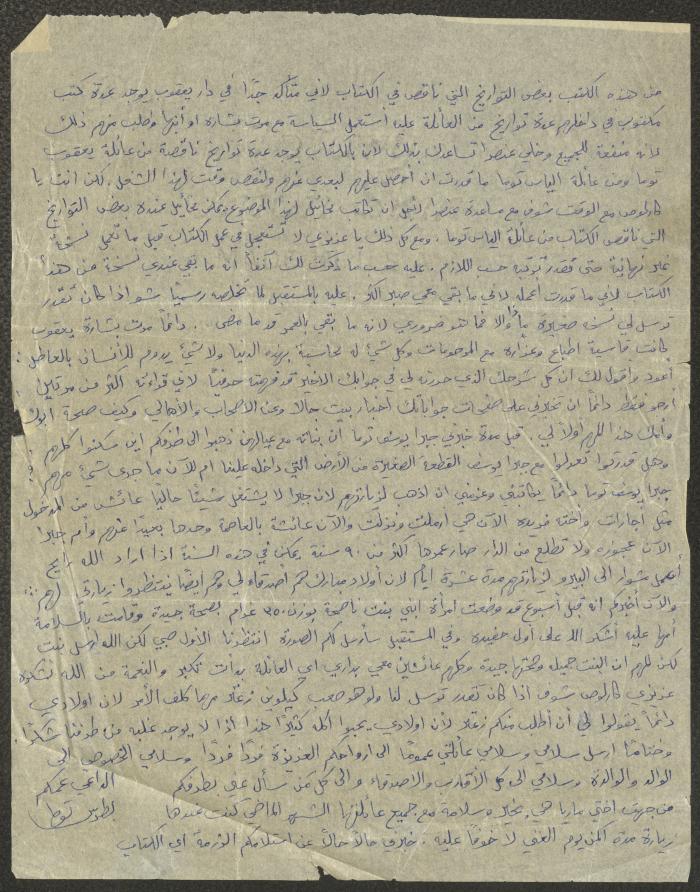 من هذه الكتب بعض التواريخ التي ناقص في الكتاب لاني متأكد جدًا في دار يعقوب يوجد عدة كتب
مكتوب في داخلهم عدة تواريخ من العائلة عليه استعمل السياسة مع مرت بشاره او ابنها وطلب منهم ذلك
لانه منفعة للجميع وخلي عنصرا تساعدك بذلك لان بالكتاب يوجد عدة تواريخ ناقصة من عائلة يعقوب
توما ومن عائلة الياس توما ما قدرت ان احصل عليهم لبعدي عنهم ولنقص وقت لهذا الشغل. لكن انت يا
كارلوس مع الوقت شوف مع مساعدة عنصرا لاجل ان تكاتب مخائيل لهذا الموضوع ويمكن مخايل عنده بعض التواريخ
التي ناقص الكتاب من عائلة الياس توما. ومع كل ذلك يا عزيزي لا تستعجل في عمل الكتاب قبل ما تعمل نسخة
غير نهائية حتى تقدر ترتبه حسب اللازم. عليه حسب ما ذكرت لك آنفًا انه ما بقي عندي نسخة من هذا
الكتاب لاني ما قدرت اعمله لاني ما بقي معي صبر اكثر. عليه بالمستقبل لما تخلصه رسميًا شو اذا كان تقدر
توسل لي نسخه صغيرة والا فما هو ضروري لانه ما بقي بالعمر قد ما مضى.. دائمًا مرت بشارة يعقوب
كانت قاسية اطباع وعنزاره مع الموجودات وكل شيء له محاسبة بهذه الدنيا ولا شيء يدوم للأنسان بالعاطل.
أعود واقول لك ان كل شرحك الذي حررته لي في جوابك الاخير قد فهمته حرفيًا لاني قرأته اكثر من مرتين.
أرجو فقط دائمًا ان تخبرني على صفحات جواباتك أخبار بيت جالا وعن الاصحاب والأهالي وكيف صحة ابوك
وأمك هذا المهم أولاً لي. قبل مدة خبرني جبرا يوسف توما ان بناته مع عيالهن ذهبوا الى طرفكم اين سكنوا كلهم؟
وهل قدرتوا تعدلوا مع جبرا يوسف القطعة الصغيرة من الأرض التي داخله علينا ام للآن ما جرى شيء منهم؟
جبرا يوسف توما دائمًا يكاتبني وعزمني ان اذهب لزيارتهم لان جبرا لا يشتغل شيئًا حاليًا عائش من المدخول
مثل اجارات واخته فريده الآن هي ارملت ونزلت والآن عائشة بالعاصمة وحدها بعيدًا عنهم وأم جبرا
الآن عجوزه ولا تطلع من الدار صار عمرها اكثر من ٩٠ سنة يمكن في هذه السنة اذا اراد الله رايح
أعمل مشوار الى البيرو لزيارتهم مدة عشرة ايام لان أولاد مبارك هم أصدقاء لي وهم ايضًا ينتظروا زيارتي لهم.
والآن أخبركم انه قبل أسبوع قد وضعت امرأة ابني بنت ناصحة بوزن ٣٥٠٠ غرام بصحة جيدة وقامت بالسلامة
أمها عليه أشكر الله على أول حفيده وفي المستقبل سأرسل لكم الصورة انتظرنا الأول صبي لكن الله ارسل بنت
لكن المهم ان البنت جميله وصحتها جيدة وكلهم عائشين معي بداري اي العائلة بدأت تكبر والنعمة من الله نشكره
عزيزي كارلوس شوف اذا كان تقدر توسل لنا ولو هو صعب كيلوين زعتر مهما كلف الأمر لان اولادي
دائمًا يقولوا لي أن أطلب منكم زعتر لأن اولادي يحبوا أكله كثيرًا هذا اذا لا يوجد غلبه من طرفنا شكرًا.
وختامًا ارسل سلامي وسلامي عائلتي عمومًا الى ارواحكم العزيزة فردًا فردًا وسلامي الخصوصي الى
الوالد والوالدة وسلامي الى كل الأقارب والأصدقاء والى كل من سأل عني بطرفكم الداعي عمكم
من جهة اختي ماريا هي بخير وسلامة مع جميع عائلتها الشهر الماضي كنت عندها بطرس توما
زيارة مدة المن يوم الغني لا خوفًا عليه. خبرني حالاً حالاً عن استلامكم الرزمة اي الكتاب